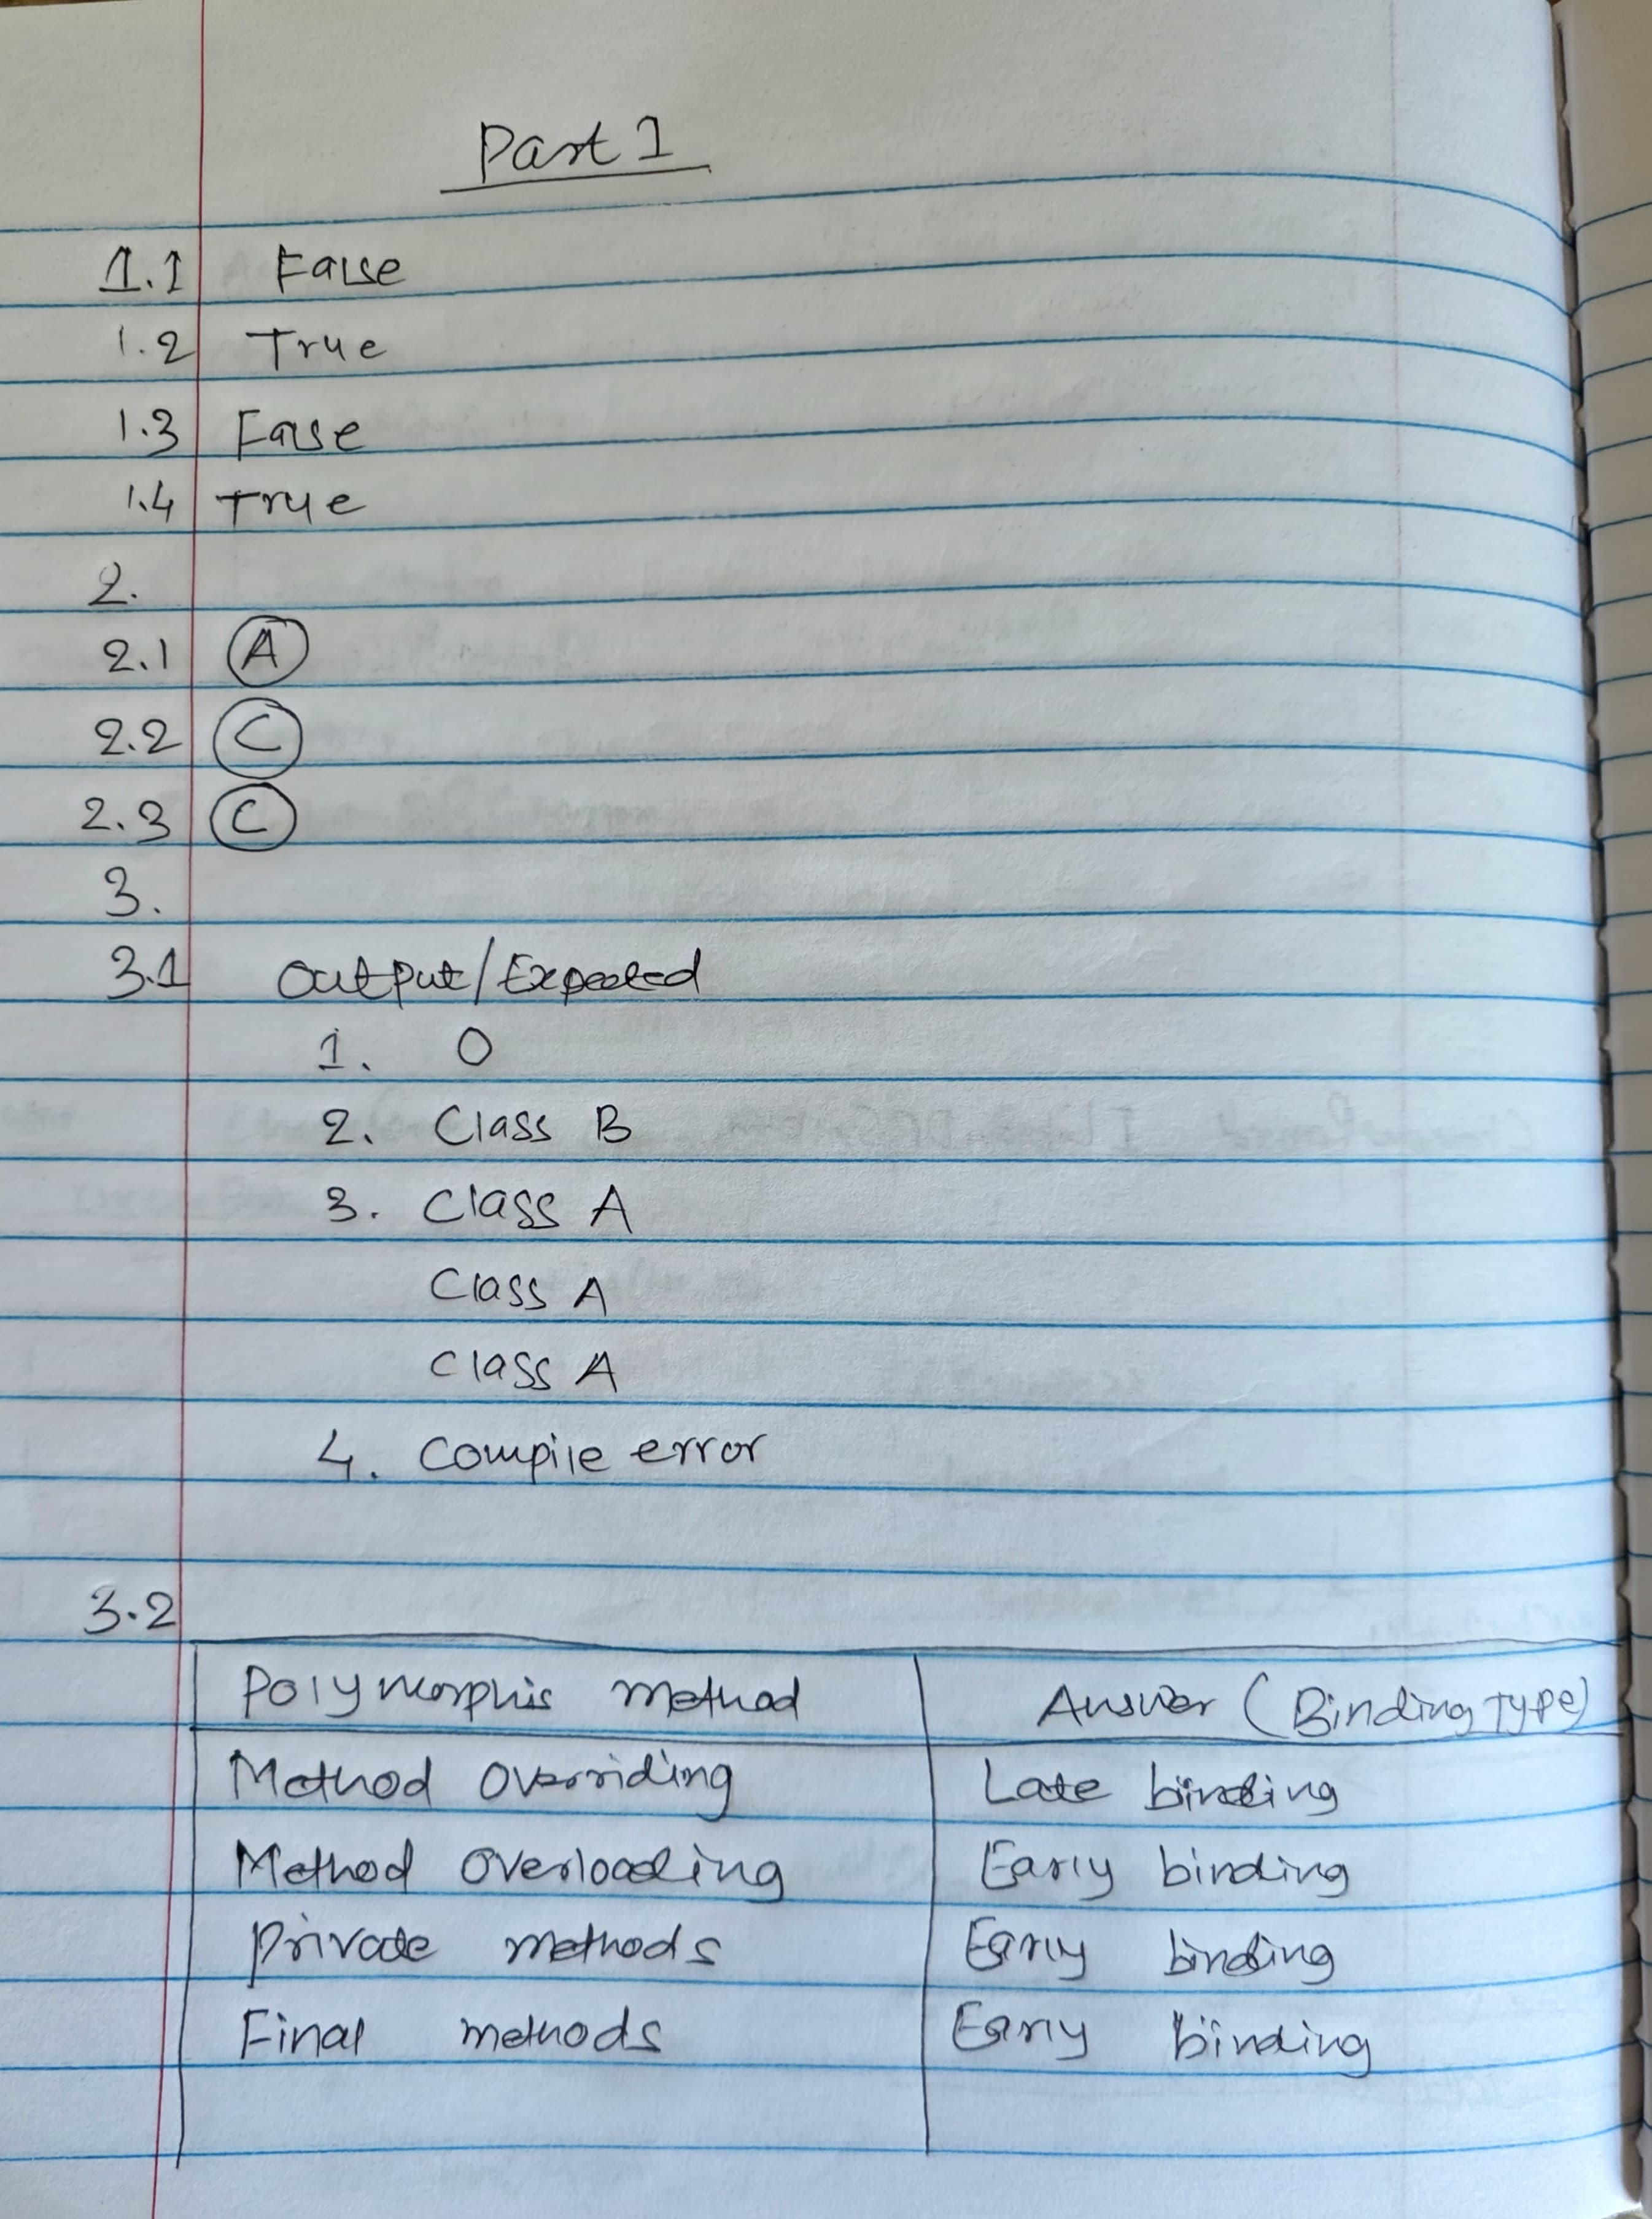 Part 1
1.1 False
1.2 True
1.3 False
1.4 True
2.
2.1 A
2.2 C
2.3 C
3.
3.1 Output/Expected
1. 0
2. Class B
3. Class A
Class A
Class A
4. Compile error
3.2
Polymorphic method Answer (Binding Type)
Method Overriding Late binding
Method Overloading Early binding
Private methods Early binding
Final methods Early binding